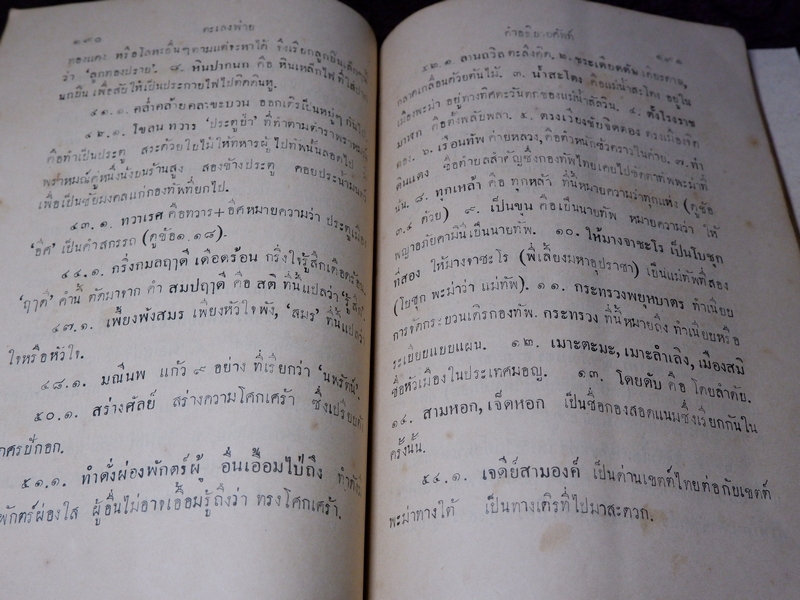 ๑๙๐ ตะเลงพ่าย
ทองแดง หรือโลหะอื่นๆตามแต่จะหาได้ จึงเรียกลูกปืนเล็กตาม
ว่า 'ลูกทองปราย'. ๘. หินปากนก คือ หินเหล็กไฟที่ใส่ปาก
นกปืน เพื่อสับให้เป็นประกายไฟไปติดดินหู.
๔๑.๑. คล่ำคล้ายคลาขะบวน ออกเดิรเป็นหมู่ๆ กันไป
๔๒.๑. โขลน ทวาร 'ประตูป่า' ที่ทำตามตำราพราหมณ์
คือทำเป็นประตู สระด้วยใบไม้ให้ทหารผู้ไปทัพนั้นลอดไป
พราหมณ์คู่หนึ่งนั่งบนร้านสูง สองข้างประตู คอยประน้ำมนตร์
เพื่อเป็นชัยมงคลแก่กองทัพที่ยกไป.
๔๓.๑. ทวาเรศ คือทวาร+อิศหมายความว่า ประตูเมือง
'อิศ' เป็นคำสกรรถ (ดูข้อ๑.๑๘).
๔๔.๑. กริ่งกมลฤๅดี เดือดร้อน กริ่งใจรู้สึกเดือดร้อน.
'ฤๅดี' คำนี้ ตัดมาจาก คำ สมปฤๅดี คือ สติ ที่นี้แปลว่า 'รู้สึก'.
๔๗.๑. เพี้ยงพังสมร เพียงหัวใจพัง, 'สมร' ที่นี้แปลว่า
ใจหรือหัวใจ.
๔๘.๑. มณีนพ แก้ว ๙ อย่าง ที่เรียกว่า 'นพรัตน์'.
๕๐.๑. สร่างศัลย์ สร่างความโศกเศร้า ซึ่งเปรียบด้วย
ศรปักอก.
๕๑.๑. ทำดั่งผ่องพักตร์ผู้ อื่นเอื้อมไป่ถึง ทำ
พักตร์ผ่องใส ผู้อื่นไม่อาจเอื้อมรู้ถึงว่า ทรงโศกเศร้า.
คำอธิบายศัพท์ ๑๙๑
๕๒.๑. ลานถวิล คะลึงคิด. ๒. ระเดียดดัน เดียรดาษ,
กลาดเกลื่อนด้วยต้นไม้. ๓. น้ำสะโตง คือแม่น้ำสะโตง อยู่ใน
เมืองพะม่า อยู่ทางทิศตะวันตกของแม่น้ำสัลวิน. ๔. ตั้งโรงราช
มาเรศ คือตั้งพลับพลา. ๕. ตรงเวียงชัยจิตตอง ตรงเมืองจิต
ตอง. ๖. เรือนทัพ ค่ายหลวง, คือตำหนักชั่วคราวในค่าย. ๗. ทำ
ดินแดง ชื่อตำบลสำคัญซึ่งกองทัพไทยเคยไปขัดตาทัพพะม่าที่
นั่น. ๘. ทุกเหล้า คือ ทุกหล้า ที่นี้หมายความว่าทุกแห่ง (ดูข้อ
๓.๔ ด้วย) ๙. เป็นขุน คือเป็นนายทัพ หมายความว่า ให้
พญาอภัยคามินีเป็นนายทัพ. ๑๐. ให้มางจาชะโร เป็นโบชุก
ที่สอง ให้มางจาชะโร (พี่เลี้ยงมหาอุปราชา) เป็นแม่ทัพที่สอง
(โบชุก พะม่าว่า แม่ทัพ). ๑๑. กระทรวงพยุหบาตร ทำเนียบ
การจัดกระบวนเดิรกองทัพ. กระทรวง ที่นี้หมายถึง ทำเนียบหรือ
ระเบียบแบบแผน. ๑๒. เมาะตะมะ, เมาะลำเลิง, เมืองสมิ
ชื่อหัวเมืองในประเทศมอญ. ๑๓. โดยดับ คือ โดยลำดับ.
๑๔. สามหอก, เจ็ดหอก เป็นชื่อกองสอดแนมซึ่งเรียกกันใน
ครั้งนั้น.
๕๔.๑. เจดีย์สามองค์ เป็นด่านเขตต์ไทยต่อกับเขตต์
พะม่าทางใต้ เป็นทางเดิรที่ไปมาสะดวก.